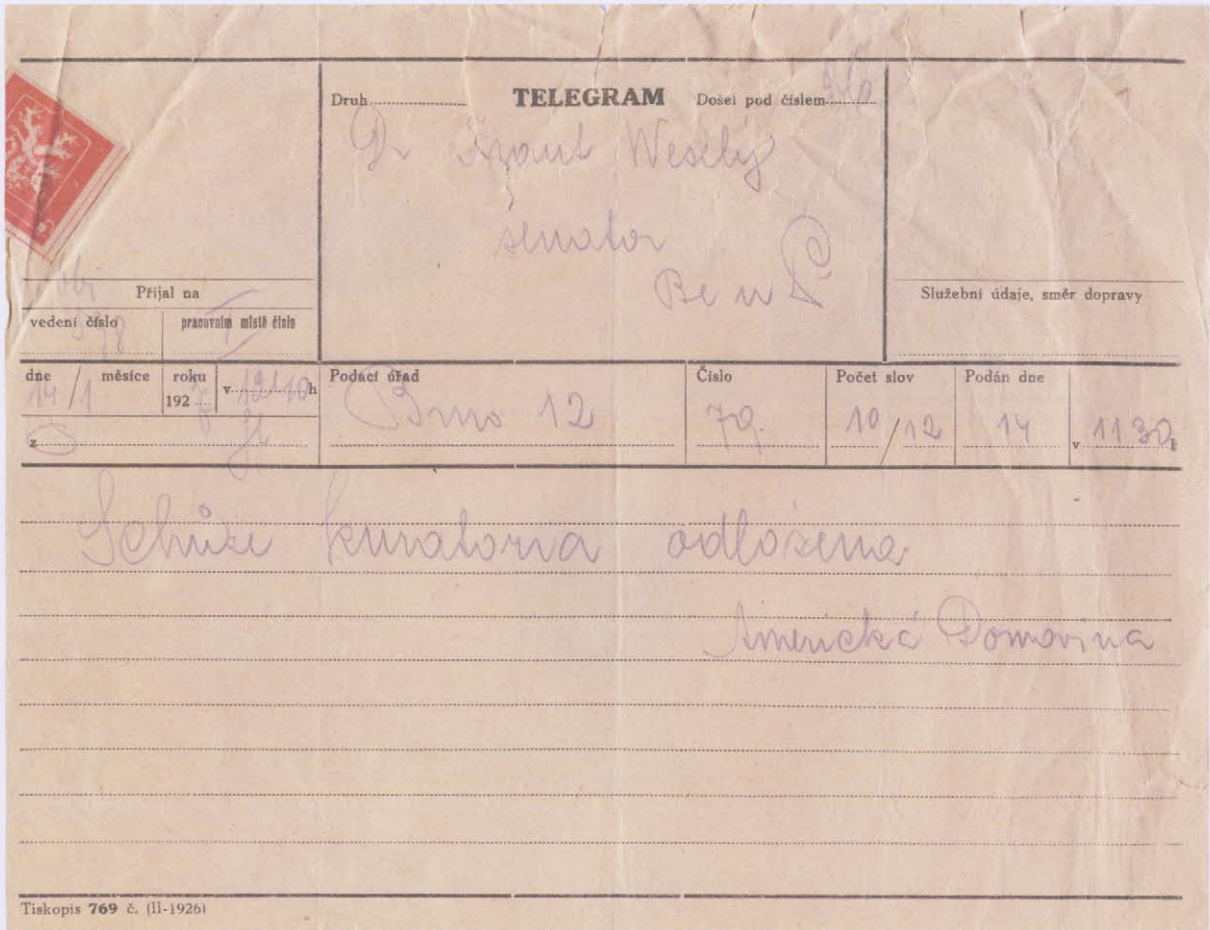 Druh TELEGRAM Došel pod číslem
Dr Wesely
senator
Přijal na
vedení číslo
pracovním místě číslo
Služební údaje, směr dopravy
dne 14/1 měsíce roku 192 v 12 10 h
z
Podací úřad Brno 12
Číslo 79.
Počet slov 10/12
Podán dne 14 v 1130 h
Schůze kuratoria odložena
Americká Domovina
Tiskopis 769 č. (II-1926)